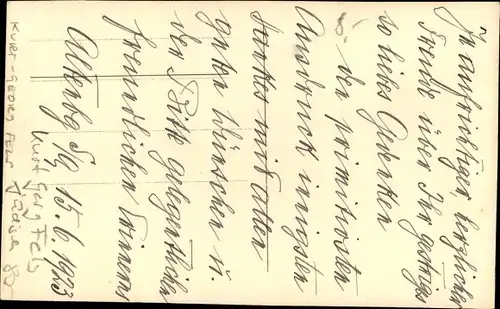 In aufrichtiger, herzlicher
Freude über Ihr gestriges
so liebes Gedenken
den primitivsten
Ausdruck innigsten
Dankes mit allen
guten Wünschen u.
der Bitte gelegentlichen
freundlichen Erinnerns
Altenbg S/A, 15.6.1923
Kurt Georg Fels
Kurt-Georg Fels